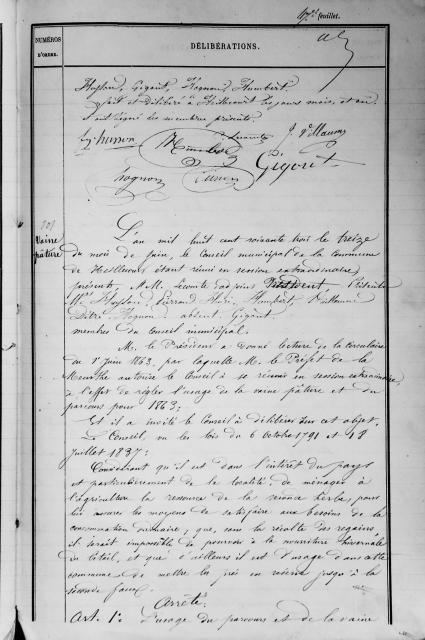 feuillet.
NUMÉROS
D'ORDRE.
DÉLIBÉRATIONS.
Gigant, Humbert.
fait et délibéré à les jours mois, et an
et ont signé les membres présents.
Husson
Gigant
Vaine
pâture
L'an mil huit cent soixante trois le treize
du mois de Juin, le Conseil municipal de la commune
de étant réuni en session extraordinaire,
présents, M.M. Lecomte adjoint Président,
Humbert,
absent, Gigant,
membres du conseil municipal.
M. le Président a donné lecture de la circulaire
du 1er Juin 1863, par laquelle M. le Préfet de la
Meurthe autorise le Conseil à se réunir en session extraordinaire
à l'effet de régler l'usage de la vaine pâture et du
parcours pour 1863;
Et il a invité le Conseil à délibérer sur cet objet.
Le Conseil, vu les lois du 6 octobre 1791 et 18
Juillet 1837;
Considérant qu'il est dans l'intérêt du pays
et particulièrement de la localité de ménager à
l'agriculture la ressource de la seconde herbe, pour
lui assurer les moyens de satisfaire aux besoins de la
consommation ; que, sans la récolte des regains
il serait impossible de pourvoir à la nourriture hivernale
du bétail, et que d'ailleurs il est d'usage dans cette
commune de mettre les prés en réserve jusqu'à la
seconde faux.
Arrête:
Art. 1er L'usage du parcours et de la vaine